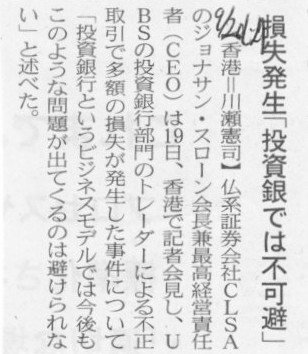 損失発生「投資銀では不可避」
9/20
【香港=川瀬憲司】仏系証券会社CLSA
のジョナサン・スローン会長兼最高経営責任
者(CEO)は19日、香港で記者会見し、U
BSの投資銀行部門のトレーダーによる不正
取引で多額の損失が発生した事件について
「投資銀行というビジネスモデルでは今後も
このような問題が出てくるのは避けられな
い」と述べた。